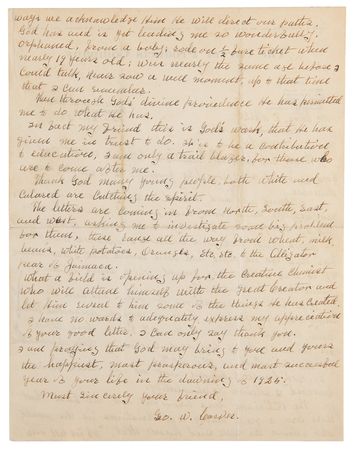 ways we acknowledge Him He will direct our paths.
God has and is yet leading me so wonderfully.
Orphaned, from a baby; rode on a pure ticket when
nearly 19 years old; was nearly the same age before I
could talk, never saw a well moment, up to that time
that I can remember.
Then through God's divine providence He has permitted
me to do what He has.
In fact my friend this is God's work, that He has
given me in trust to do. It is to be a contribution
to education, I am only a trail blazer, for those who
are to come after me.
Thank God many young people, both white and
Colored are catching the spirit.
The letters are coming in from North, South, East,
and West, asking me to investigate some big problem
for them, these range all the way from wheat, milk
beans, white potatoes, oranges, etc, etc. to the Aligator
pear of Jamaca.
What a field is opening up for the Creative Chemist
who will attune himself with the great Creator and
let Him reveal to him some of the things He has Created.
I have no words to adequately express my appreciation
of your good letter. I can only say thank you.
I am praying that God may bring to you and yours
the happiest, most prosperous, and most successful
year of your life in the dawning of 1925.
Most Sincerely your friend,
Geo. W. Carver.